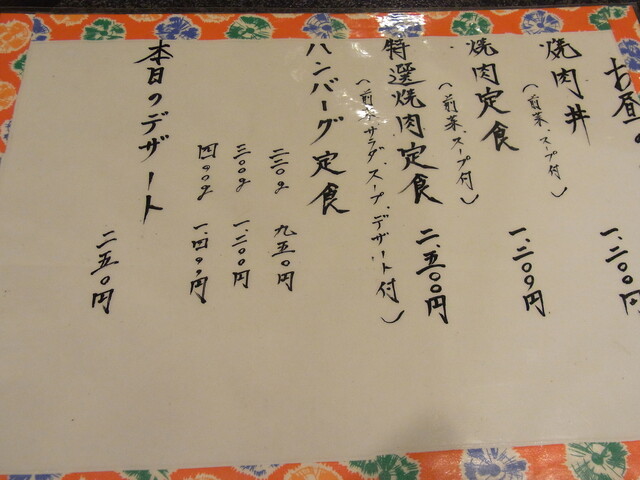 お昼の
焼肉丼
(前菜、スープ付)
一、二〇〇円
焼肉定食
(前菜、スープ付)
一、二〇〇円
特選焼肉定食
(前菜、サラダ、スープ、デザート付)
二、五〇〇円
ハンバーグ定食
二〇〇g 九五〇円
三〇〇g 一、二〇〇円
四〇〇g 一、四〇〇円
本日のデザート
二五〇円